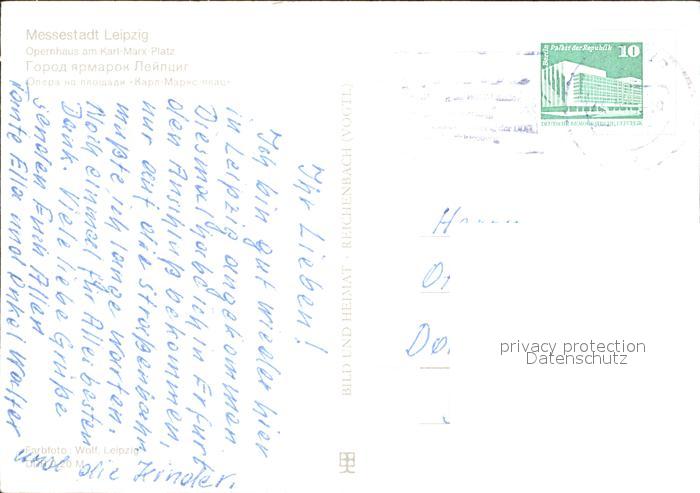 Messestadt Leipzig
Opernhaus am Karl-Marx-Platz
Город ярмарок Лейпциг
Опера на площади «Карл-Маркс-плац»
Ihr Lieben!
Ich bin gut wieder hier
in Leipzig angekommen
Diesmal habe ich in Erfurt
den Anschluß bekommen,
nur auf die Straßenbahn
mußte ich lange warten.
Noch einmal für Alles besten
Dank. Viele liebe Grüße
senden Euch Allen
Tante Ella und Onkel Walter
und die Kinder.
Farbfoto: Wolf, Leipzig
BILD UND HEIMAT · REICHENBACH (VOGTL)
Berlin Palast der Republik
10
DEUTSCHE DEMOKRATISCHE REPUBLIK
privacy protection
Datenschutz